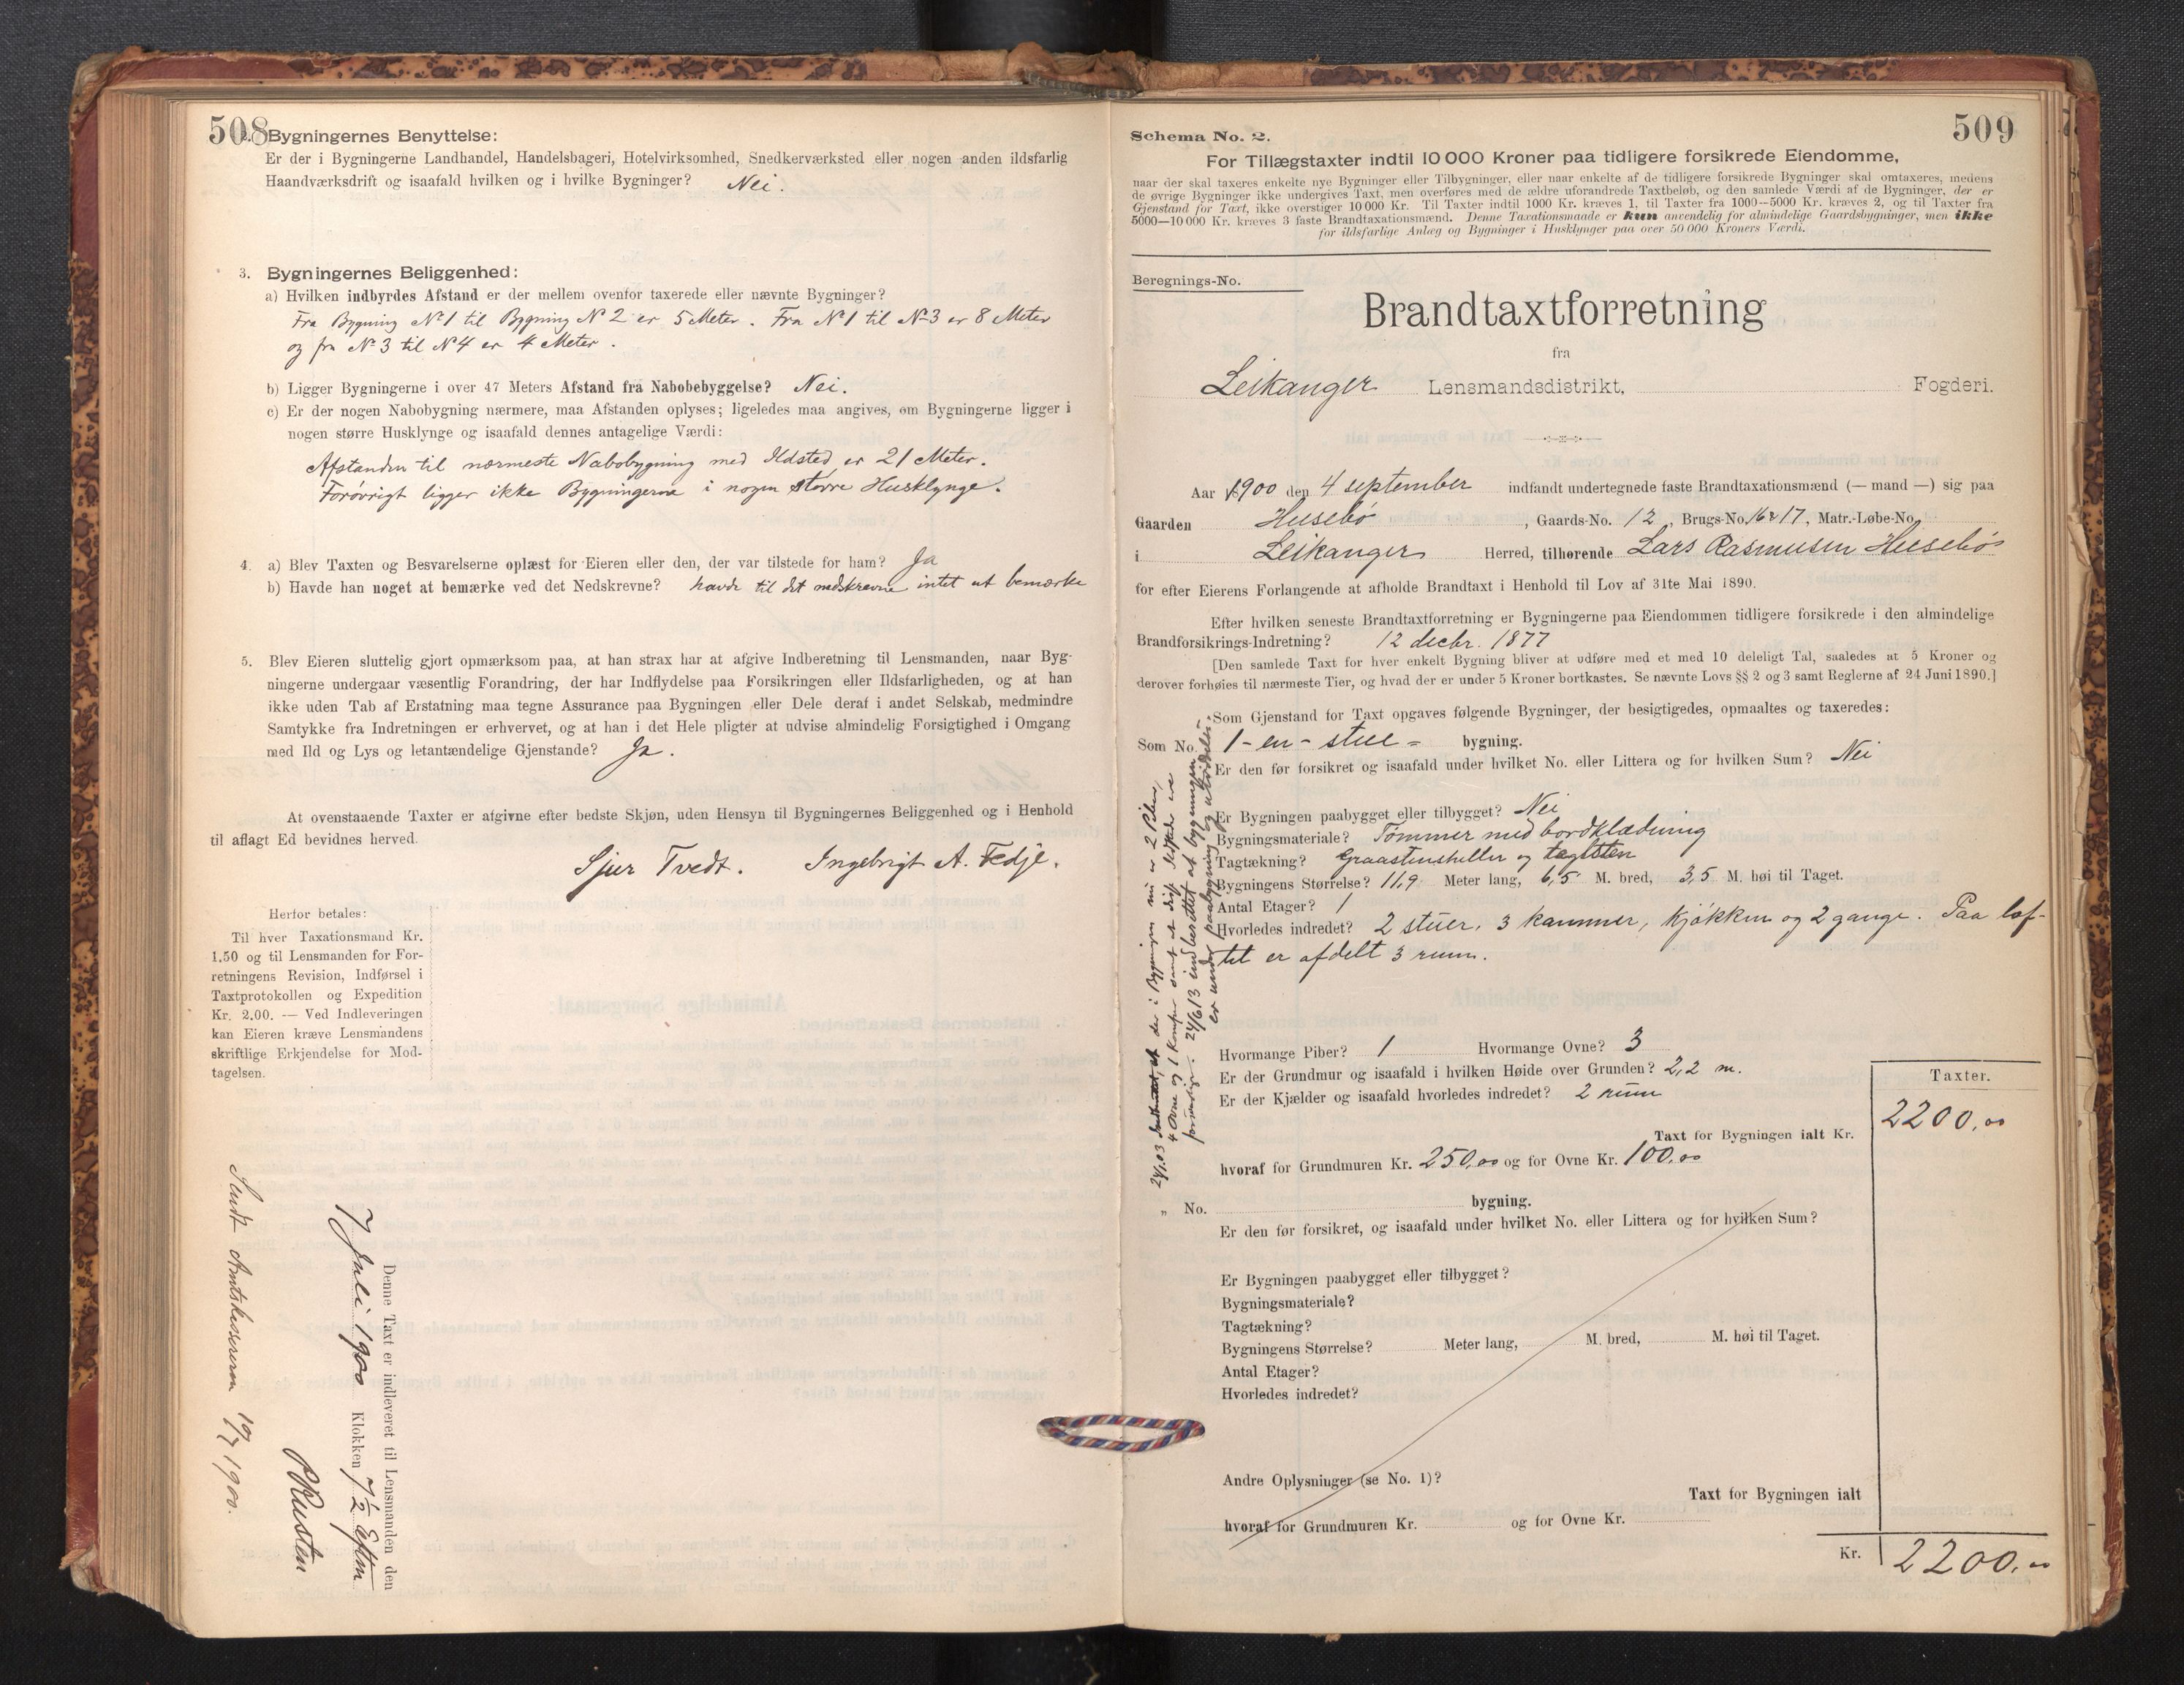 508
2. Bygningernes Benyttelse:
Er der i Bygningerne Landhandel, Handelsbageri, Hotelvirksomhed, Snedkerværksted eller nogen anden ildsfarlig
Haandværksdrift og isaafald hvilken og i hvilke Bygninger? Nei.
3. Bygningernes Beliggenhed:
a) Hvilken indbyrdes Afstand er der mellem ovenfor taxerede eller nævnte Bygninger?
Fra Bygning No 1 til Bygning No 2 er 5 Meter. Fra No 1 til No 3 er 8 Meter
og fra No 3 til No 4 er 4 Meter.
b) Ligger Bygningerne i over 47 Meters Afstand fra Nabobebyggelse? Nei.
c) Er der nogen Nabobygning nærmere, maa Afstanden oplyses; ligeledes maa angives, om Bygningerne ligger i
nogen større Husklynge og isaafald dennes antagelige Værdi:
Afstanden til nærmeste Nabobygning med Ildsted er 21 Meter.
Forøvrigt ligger ikke Bygningerne i nogen større Husklynge.
4. a) Blev Taxten og Besvarelserne oplæst for Eieren eller den, der var tilstede for ham? Ja
b) Havde han noget at bemærke ved det Nedskrevne? havde til det nedskrevne intet at bemærke
5. Blev Eieren sluttelig gjort opmærksom paa, at han strax har at afgive Indberetning til Lensmanden, naar Byg-
ningerne undergaar væsentlig Forandring, der har Indflydelse paa Forsikringen eller Ildsfarligheden, og at han
ikke uden Tab af Erstatning maa tegne Assurance paa Bygningen eller Dele deraf i andet Selskab, medmindre
Samtykke fra Indretningen er erhvervet, og at han i det Hele pligter at udvise almindelig Forsigtighed i Omgang
med Ild og Lys og letantændelige Gjenstande? Ja.
At ovenstaaende Taxter er afgivne efter bedste Skjøn, uden Hensyn til Bygningernes Beliggenhed og i Henhold
til aflagt Ed bevidnes herved.
Sjur Tvedt. Ingebrigt A. Fedje.
Herfor betales:
Til hver Taxationsmand Kr.
1.50 og til Lensmanden for For-
retningens Revision, Indførsel i
Taxtprotokollen og Expedition
Kr. 2.00. — Ved Indleveringen
kan Eieren kræve Lensmandens
skriftlige Erkjendelse for Mod-
tagelsen.
Denne Taxt er indleveret til Lensmanden den
7 Juli 1900 Klokken 7½ Eftm
Sendt Amtskassereren 10/7 1900.
509
Schema No. 2.
For Tillægstaxter indtil 10 000 Kroner paa tidligere forsikrede Eiendomme,
naar der skal taxeres enkelte nye Bygninger eller Tilbygninger, eller naar enkelte af de tidligere forsikrede Bygninger skal omtaxeres, medens
de øvrige Bygninger ikke undergives Taxt, men overføres med de ældre uforandrede Taxtbeløb, og den samlede Værdi af de Bygninger, der er
Gjenstand for Taxt, ikke overstiger 10 000 Kr. Til Taxter indtil 1000 Kr. kræves 1, til Taxter fra 1000—5000 Kr. kræves 2, og til Taxter fra
5000—10 000 Kr. kræves 3 faste Brandtaxationsmænd. Denne Taxationsmaade er kun anvendelig for almindelige Gaardsbygninger, men ikke
for ildsfarlige Anlæg og Bygninger i Husklynger paa over 50 000 Kroners Værdi.
Beregnings-No.
Brandtaxtforretning
fra
Leikanger Lensmandsdistrikt, Fogderi.
Aar 1900 den 4 september indfandt undertegnede faste Brandtaxationsmænd (— mand —) sig paa
Gaarden Husebø, Gaards-No. 12, Brugs-No. 16 & 17, Matr.-Løbe-No.
i Leikanger Herred, tilhørende Lars Rasmusen Husebø
for efter Eierens Forlangende at afholde Brandtaxt i Henhold til Lov af 31te Mai 1890.
Efter hvilken seneste Brandtaxtforretning er Bygningerne paa Eiendommen tidligere forsikrede i den almindelige
Brandforsikrings-Indretning? 12 decbr. 1877
[Den samlede Taxt for hver enkelt Bygning bliver at udføre med et med 10 deleligt Tal, saaledes at 5 Kroner og
derover forhøies til nærmeste Tier, og hvad der er under 5 Kroner bortkastes. Se nævnte Lovs §§ 2 og 3 samt Reglerne af 24 Juni 1890.]
Som Gjenstand for Taxt opgaves følgende Bygninger, der besigtigedes, opmaaltes og taxeredes:
Som No. 1 - en - stue = bygning.
Er den før forsikret og isaafald under hvilket No. eller Littera og for hvilken Sum? Nei
Er Bygningen paabygget eller tilbygget? Nei
Bygningsmateriale? Tømmer med bordklædning
Tagtækning? Graastensheller og taglsten
Bygningens Størrelse? 11,9 Meter lang, 6,5 M. bred, 3,5 M. høi til Taget.
Antal Etager? 1
Hvorledes indredet? 2 stuer, 3 kammer, kjøkken og 2 gange. Paa lof-
tet er afdelt 3 rum.
Hvormange Piber? 1 Hvormange Ovne? 3
Er der Grundmur og isaafald i hvilken Høide over Grunden? 2,2 m.
Er der Kjælder og isaafald hvorledes indredet? 2 rum
Taxter.
Taxt for Bygningen ialt Kr. 2200,00
hvoraf for Grundmuren Kr. 250,00 og for Ovne Kr. 100,00
24/1 03 at der i Bygningen nu er 2 Piber,
4 Ovne og 1 Komfur samt at disse Ildsteder ere
forsvarlige. 24/6 13 indberettet at bygningen
er under paabygning og utvidelse.
" No. bygning.
Er den før forsikret, og isaafald under hvilket No. eller Littera og for hvilken Sum?
Er Bygningen paabygget eller tilbygget?
Bygningsmateriale?
Tagtækning?
Bygningens Størrelse? Meter lang, M. bred, M. høi til Taget.
Antal Etager?
Hvorledes indredet?
Andre Oplysninger (se No. 1)?
Taxt for Bygningen ialt
hvoraf for Grundmuren Kr. og for Ovne Kr.
Kr. 2200,00